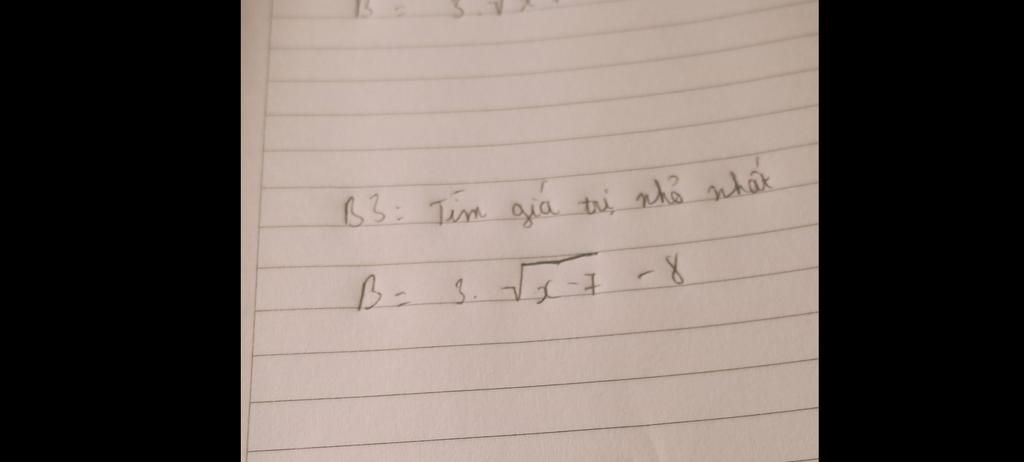 B = 3.√x
B3: Tìm giá trị nhỏ nhất
B = 3. √x-7 - 8